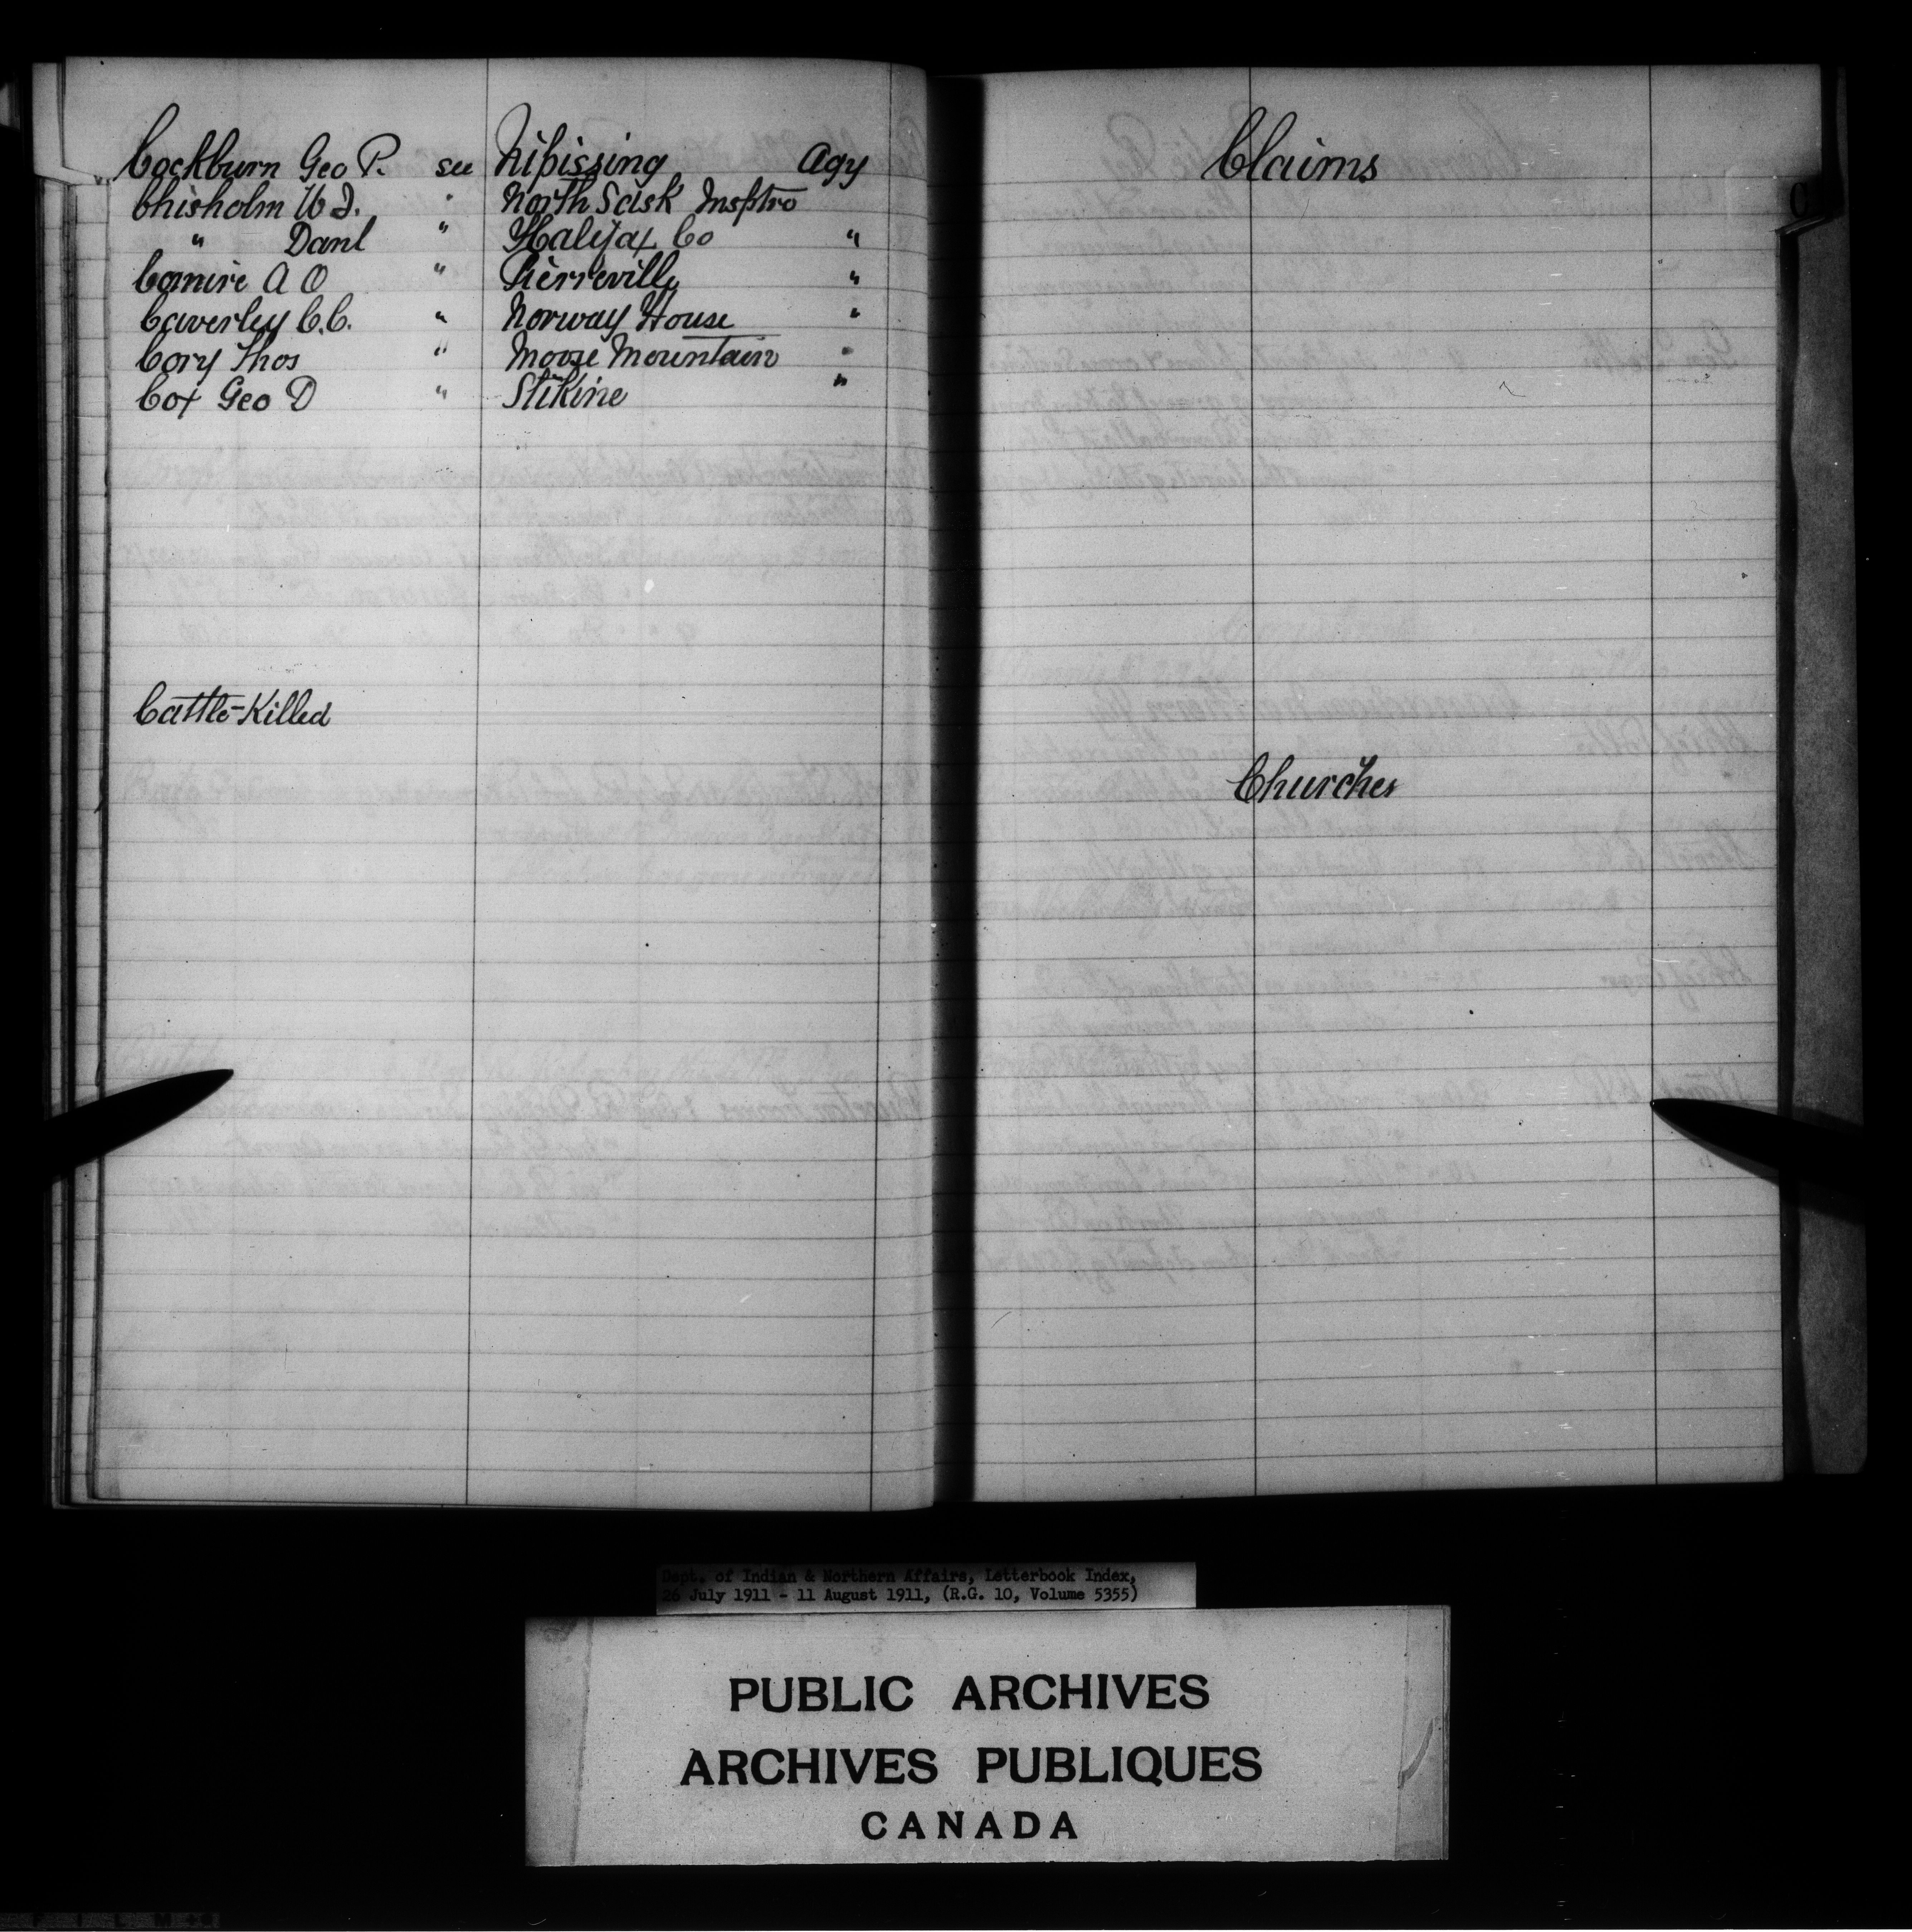 Cockburn Geo P. see Nipissing Agy
Chisholm W J. " North Sask Insptro
" Danl " Halifax Co "
Comire A O " Pierreville "
Caverley C.C. " Norway House "
Cory Thos " Moose Mountain "
Cox Geo D " Stikine "
Cattle-Killed
Claims
C
Churches
Dept. of Indian & Northern Affairs, Letterbook Index,
26 July 1911 - 11 August 1911, (R.G. 10, Volume 5355)
PUBLIC ARCHIVES
ARCHIVES PUBLIQUES
CANADA